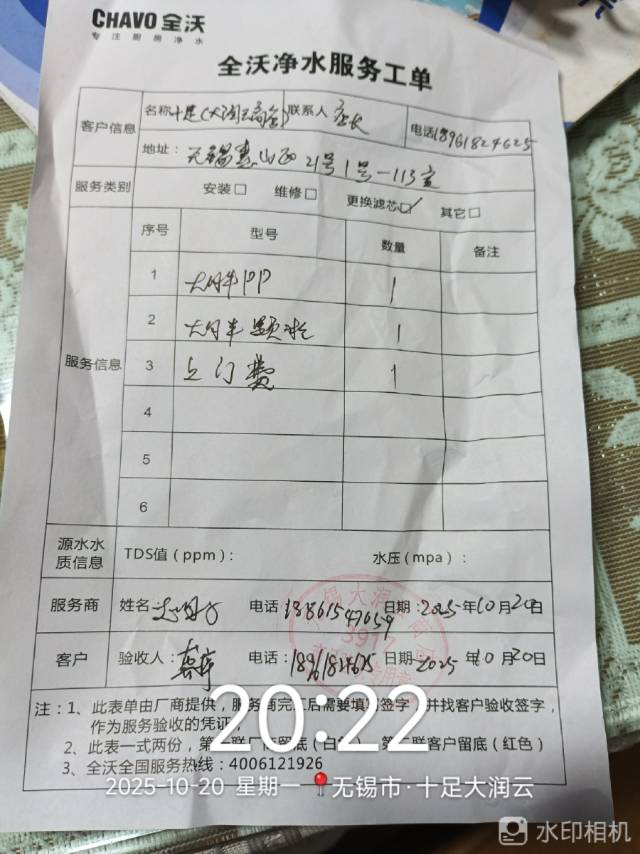 CHAVO 全沃
专注厨房净水
全沃净水服务工单
客户信息 名称 十足(大润云商仓) 联系人 店长 电话 18961824625
地址: 无锡惠山西21号1号-113室
服务类别 安装□ 维修□ 更换滤芯☑ 其它□
服务信息 序号 型号 数量 备注
1 大月半PP 1
2 大月半颗粒 1
3 上门费 1
4
5
6
源水水质信息 TDS值(ppm): 水压(mpa):
服务商 姓名 电话 13861547659 日期: 2025年10月20日
客户 验收人: 电话: 18961824625 日期 2025年10月20日
注:1、此表单由厂商提供,服务商完工后需要填写签字,并找客户验收签字,
作为服务验收的凭证
2、此表一式两份,第一联厂商留底(白色),第二联客户留底(红色)
3、全沃全国服务热线:4006121926
20:22
2025-10-20 星期一 无锡市·十足大润云
水印相机